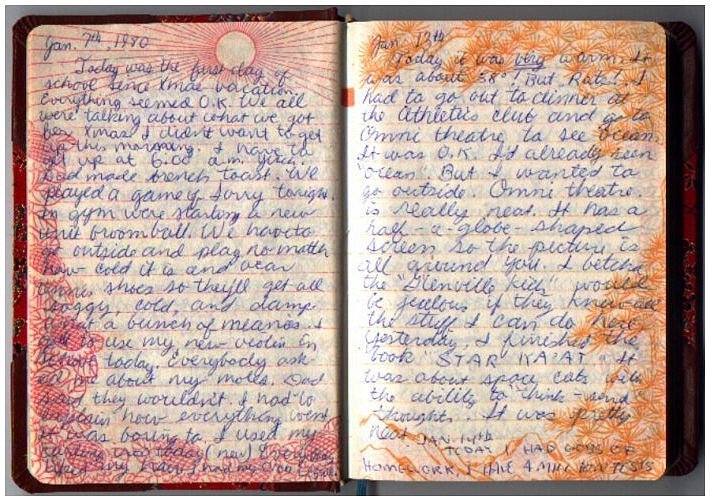 Jan. 7th, 1980
Today was the first day of
school since Xmas vacation.
Everything seemed O.K. We all
were talking about what we got
Xmas. I didn't want to get
up this morning. I have to
get up at 6:00 a.m.
Dad made french toast. We
played a game of Sorry tonight.
In gym were starting a new
unit broomball. We have to
go outside and play no matter
how cold it is and wear
tennis shoes so they'll get all
soggy, cold, and damp.
What a bunch of meanies. I
got to use my new violin in
school today. Everybody ask-
ed me about my moles. Dad
said they wouldn't. I had to
explain how everything went.
It was boring to. I used my
curling iron today (new) Everybody
liked my hair. I had my own
Jan. 13th
Today it was very warm. It
was about 38°! But Rats! I
had to go out to dinner at
the Athletics club and go to
Omni theatre to see Ocean.
It was O.K. I'd already seen
"ocean". But I wanted to
go outside. Omni theatre
is really neat. It has a
half-a-globe-shaped
screen so the picture is
all around you. I betcha
the "Glenville kids" would
be jealous if they knew all
the stuff I can do here
Yesterday I finished the
book "STAR KA'AT". It
was about space cats with
the ability to think-send
thoughts. It was pretty
neat.
JAN. 14th
TODAY I HAD GOBS OF
HOMEWORK. I HAVE A MILLION TESTS